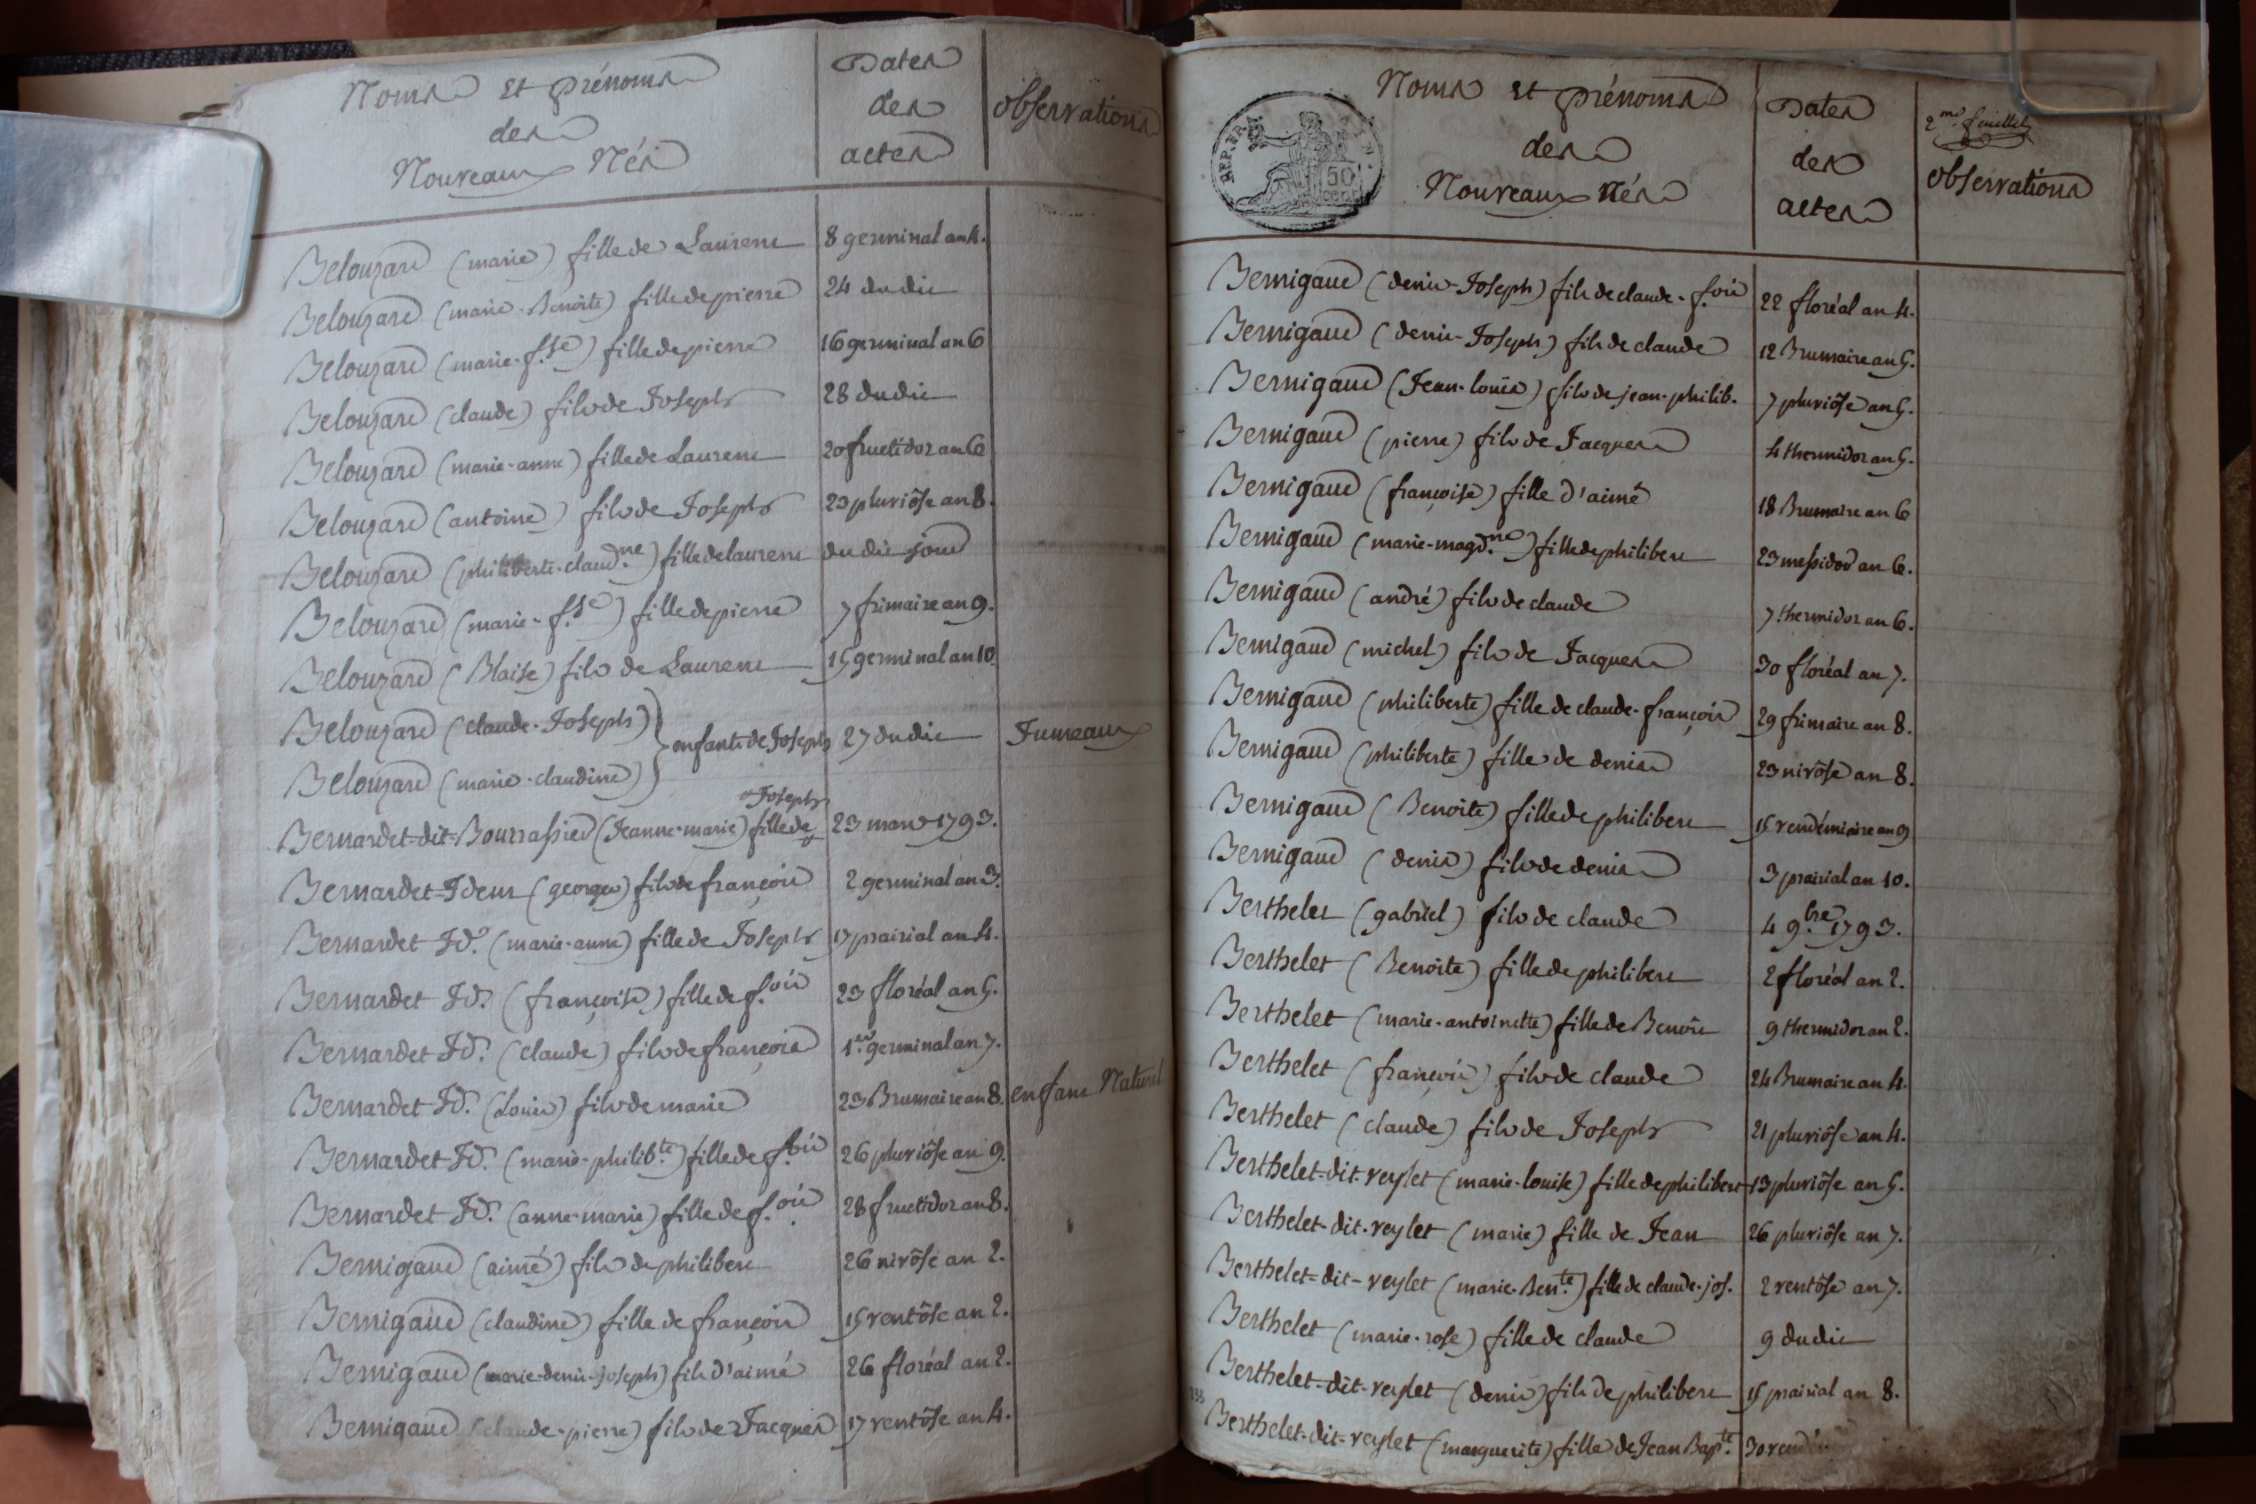 Noms et prénoms
des
Nouveaux Nés
Dates
des
actes
observations
Belouzard (marie) fille de Laurent 8 germinal an 4.
Belouzard (marie-Benoite) fille de pierre 24 dudit
Belouzard (marie-f.se) fille de pierre 16 germinal an 6
Belouzard (claude) fils de Joseph 28 dudit
Belouzard (marie-anne) fille de Laurent 20 fructidor an 6
Belouzard (antoine) fils de Joseph 23 pluviôse an 8.
Belouzard (philiberte-claud.ne) fille de laurent dudit jour
Belouzard (marie-f.se) fille de pierre 7 frimaire an 9.
Belouzard (Blaise) fils de Laurent 15 germinal an 10
Belouzard (claude-Joseph) enfants de Joseph 27 dudit Jumeaux
Belouzard (marie-claudine)
Bernardet-dit-Bourrassier (Jeanne-marie) fille de Joseph 23 mars 1793.
Bernardet-Idem (georges) fils de françois 2 germinal an 3.
Bernardet Id. (marie-anne) fille de Joseph 17 prairial an 4.
Bernardet Id. (françoise) fille de f.ois 23 floréal an 5.
Bernardet Id. (claude) fils de françois 1.er germinal an 7.
Bernardet Id. (Louis) fils de marie 23 Brumaire an 8. enfant Naturel
Bernardet Id. (marie-philib.te) fille de f.ois 26 pluviôse an 9.
Bernardet Id. (anne-marie) fille de f.ois 28 fructidor an 8.
Bernigaud (aimé) fils de philibert 26 nivôse an 2.
Bernigaud (claudine) fille de françois 15 ventôse an 2.
Bernigaud (marie-denis-joseph) fils d'aimé 26 floréal an 2.
Bernigaud (claude-pierre) fils de Jacques 17 ventôse an 4.
REP. FRA.
50
Noms et prénoms
des
Nouveaux nés
Dates
des
actes
2.me feuillet
observations
Bernigaud (denis-Joseph) fils de claude-f.ois 22 floréal an 4.
Bernigaud (denis-Joseph) fils de claude 12 Brumaire an 5.
Bernigaud (Jean-louis) fils de jean-philib. 7 pluviôse an 5.
Bernigaud (pierre) fils de Jacques 4 thermidor an 5.
Bernigaud (françoise) fille d'aimé 18 Brumaire an 6
Bernigaud (marie-magd.ne) fille de philibert 23 messidor an 6.
Bernigaud (andré) fils de claude 7 thermidor an 6.
Bernigaud (michel) fils de Jacques 30 floréal an 7.
Bernigaud (philiberte) fille de claude-françois 29 frimaire an 8.
Bernigaud (philiberte) fille de denis 23 nivôse an 8.
Bernigaud (Benoite) fille de philibert 15 vendémiaire an 9
Bernigaud (denis) fils de denis 3 prairial an 10.
Berthelet (gabriel) fils de claude 4 9.bre 1793.
Berthelet (Benoite) fille de philibert 2 floréal an 2.
Berthelet (marie-antoinette) fille de Benoit 9 thermidor an 2.
Berthelet (françois) fils de claude 24 Brumaire an 4.
Berthelet (claude) fils de Joseph 21 pluviôse an 4.
Berthelet-dit-reylet (marie-louise) fille de philibert 13 pluviôse an 5.
Berthelet-dit-reylet (marie) fille de Jean 26 pluviôse an 7.
Berthelet-dit-reylet (marie-Ben.te) fille de claude-jos. 2 ventôse an 7.
Berthelet (marie-rose) fille de claude 9 dudit
Berthelet-dit-reylet (denis) fils de philibert 15 prairial an 8.
Berthelet-dit-reylet (marguerite) fille de Jean Bap.te 30